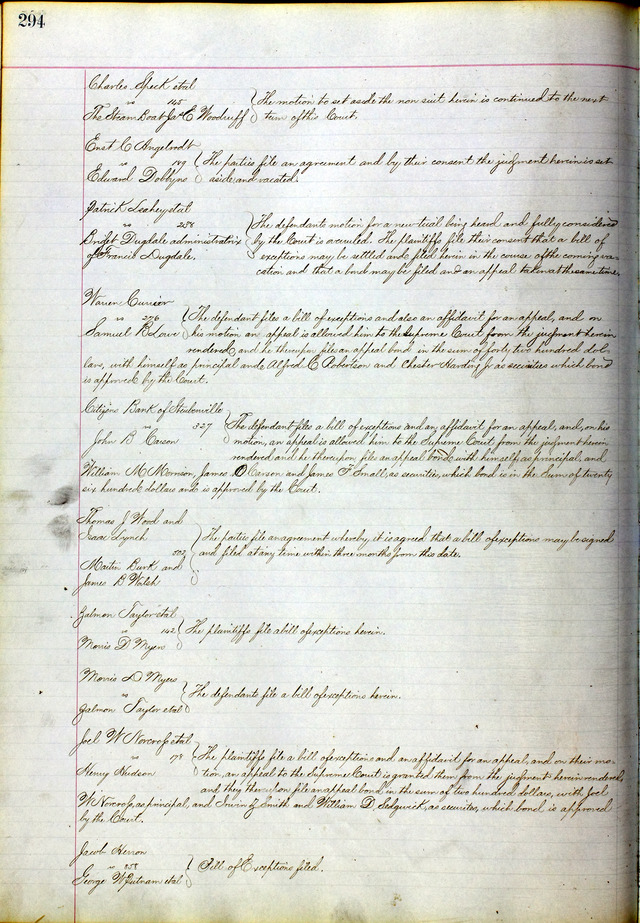 294
Charles Speck et al
vs 165
The Steam Boat Jas E Woodruff
The motion to set aside the non suit herein is continued to the next
term of this Court.
Ernst C Angelrodt
vs 189
Edward Dobbyns
The parties file an agreement and by their consent the judgment herein is set
aside and vacated.
Patrick Leahey et al
vs 258
Bridget Dugdale administratrix
of Francis Dugdale.
The defendants motion for a new trial being heard and fully considered
by the Court is overruled. The plaintiffs file their consent that a bill of
exceptions may be settled and filed herein in the course of the coming va-
cation and that a bond may be filed and an appeal taken at the same time.
Warren Currier
vs 276
Samuel B Lowe
The defendant files a bill of exceptions and also an affidavit for an appeal, and on
his motion an appeal is allowed him to the Supreme Court from the judgment herein
rendered, and he thereupon files an appeal bond in the sum of forty two hundred dol-
lars, with himself as principal and Alfred C Robertson and Chester Harding Jr as securities which bond
is approved by the Court.
Citizens Bank of Steubenville
vs 327
John B Carson
The defendant files a bill of exceptions and an affidavit for an appeal, and, on his
motion, an appeal is allowed him to the Supreme Court from the judgment herein
rendered and he thereupon files an appeal bond with himself, as principal, and
William M Morrison, James O Carson and James F Small, as securities, which bond is in the Sum of twenty
six hundred dollars and is approved by the Court.
Thomas J Wood and
Isaac Lynch
vs
Martin Burk and
James B Walsh
The parties file an agreement whereby, it is agreed that a bill of exceptions may be signed
and filed at any time within three months from this date.
Zalmon Taylor et al
vs 142
Morris D Myers
The plaintiffs file a bill of exceptions herein.
Morris D Myers
vs
Zalmon Taylor et al
The defendants file a bill of exceptions herein.
Joel W Norcross et al
vs 78
Henry Hudson
The plaintiffs file a bill of exceptions and an affidavit for an appeal, and on their mo-
tion, an appeal to the Supreme Court is granted them from the judgment herein rendered,
and they thereupon file an appeal bond in the sum of two hundred dollars, with Joel
W Norcross, as principal, and Irwin Z Smith and William D Sedgwick, as securities, which bond is approved
by the Court.
Jacob Herron
vs 258
George W Putnam et al
Bill of Exceptions filed.